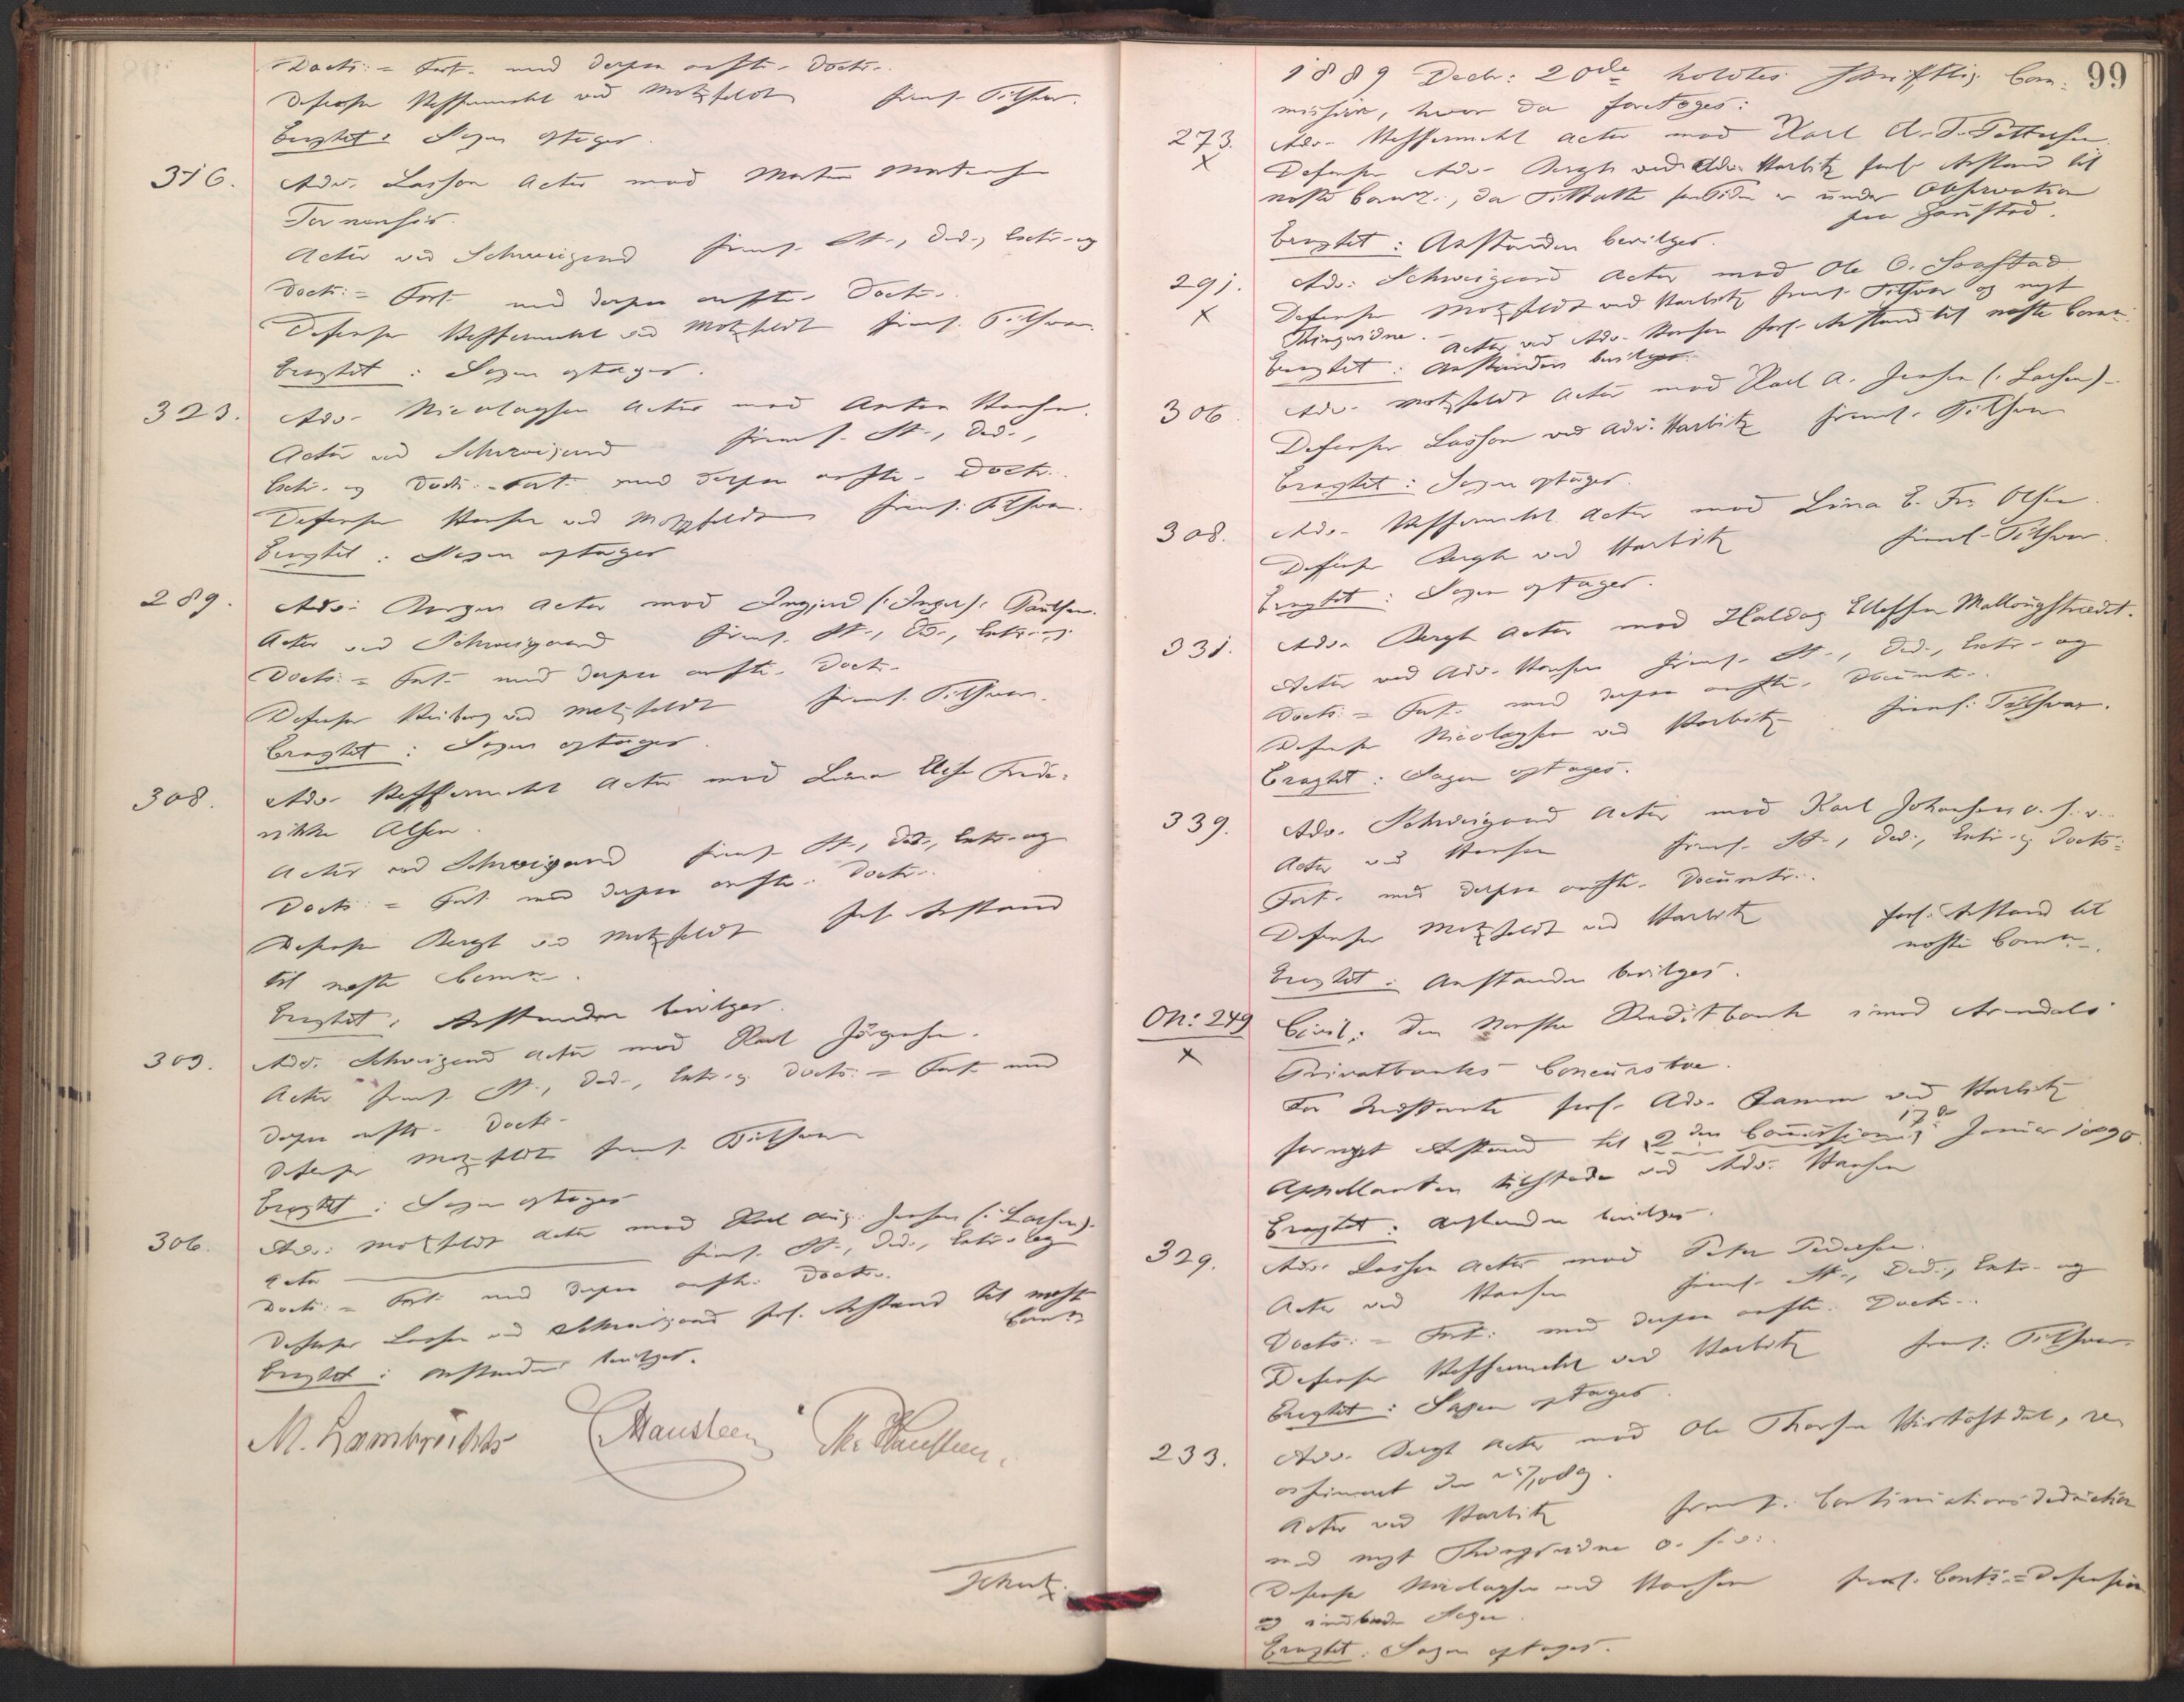 Docts: = Fort. med derpaa anfte. Docts.
Defensor Heffermehl ved Motzfeldt freml. Tilsvar.
Eragtet: Sagen optages.
316. Adv. Lasson Actor mod Morten Mortensen
Actor ved Schweigaard freml. St., Ded., Extr. og
Docts: = Fort. med derpaa anfte. Docts.
Defensor Heffermehl ved Motzfeldt freml. Tilsvar.
Eragtet: Sagen optages.
323. Adv. Nicolaysen Actor mod Anton Hansen.
Actor ved Schweigaard freml. St., Ded.,
Extr. og Docts. = Fort. med derpaa anfte. Docts.
Defensor Hansen ved Motzfeldt freml. Tilsvar.
Eragtet: Sagen optages
289. Adv. Actor mod Ingjerd (: Inger): Paulsen.
Actor ved Schweigaard freml. St., Ded., Extr. og
Docts: = Fort. med derpaa anfte. Docts.
Defensor ved Motzfeldt freml. Tilsvar.
Eragtet: Sagen optages.
308. Adv. Heffermehl Actor mod Lina Elise Frede-
rikke Olsen.
Actor ved Schweigaard freml. St., Ded., Extr. og
Docts: = Fort. med derpaa anfte. Docts.
Defensor Bergh ved Motzfeldt forl. Anstand
til næste Comn.
Eragtet: Anstanden bevilges.
309. Adv. Schweigaard Actor mod Karl Jörgensen.
Actor freml. St., Ded., Extr. og Docts: = Fort. med
derpaa anfte. Docts.
Defensor Motzfeldt freml. Tilsvar
Eragtet: Sagen optages
306. Adv: Motzfeldt Actor mod Karl Aug. Jensen (: Larsen).
Actor freml. St., Ded., Extr. og
Docts: = Fort. med derpaa anfte. Docts.
Defensor Lasson ved Schweigaard forl. Anstand til næste
Comn.
Eragtet: Anstanden bevilges.
M. Lambrechts Hansteen Hansteen.
99
1889 Decbr: 20de holdtes skriftlig Com-
mission, hvor da foretoges:
273. Adv. Heffermehl Actor mod Karl A. T. Pettersen.
x Defensor Adv. Bergh ved Adv. Harbitz forl. Anstand til
næste Comn., da Tiltalte for Tiden er under Observation
paa Gaustad.
Eragtet: Anstanden bevilges.
291. Adv: Schweigaard Actor mod Ole O.
x Defensor Motzfeldt ved Harbitz freml. Tilsvar og nyt
Thingsvidne. - Actor ved Adv. Hansen forl. Anstand til næste Comn.
Eragtet: Anstanden bevilges.
306. Adv. Motzfeldt Actor mod Karl A. Jensen (: Larsen).
Defensor Lasson ved Adv. Harbitz freml. Tilsvar
Eragtet: Sagen optages.
308. Adv. Heffermehl Actor mod Lina E. Fr. Olsen.
Defensor Bergh ved Harbitz freml. Tilsvar.
Eragtet: Sagen optages.
331. Adv. Bergh Actor mod Haldog Ellefsen
Actor ved Adv. Hansen freml. St., Ded., Extr. og
Docts: = Fort. med derpaa anfte. Documtr.
Defensor Nicolaysen ved Harbitz freml: Tilsvar.
Eragtet: Sagen optages.
339. Adv. Schweigaard Actor mod Karl Johansen o. s. v.
Actor ved Hansen freml. St., Ded., Extr. og Docts:
Fort. med derpaa anfte. Documtr.
Defensor Motzfeldt ved Harbitz forl. Anstand til
næste Comn.
Eragtet: Anstanden bevilges.
ON: 249 Civil: Den Norske Kreditbank imod Arendals
x Privatbanks Concursbo.
For Indstævnte forl. Adv. Lamm ved Harbitz
fornyet Anstand til 2den Commission i 17de Januar 1890.
Appellanten tilstede ved Adv. Hansen
Eragtet: Anstanden bevilges.
329. Adv. Lasson Actor mod Peter Pedersen.
Actor ved Hansen freml. St., Ded., Extr. og
Docts: = Fort: med derpaa anfte. Docts.
Defensor Heffermehl ved Harbitz freml: Tilsvar.
Eragtet: Sagen optages.
233. Adv. Bergh Actor mod Ole Thorsen
Actor ved Harbitz freml. Continuationsdeduction
med nyt Thingsvidne o. s. v.
Defensor Nicolaysen ved Hansen freml. Conts. = Defension
og indlader Sagen.
Eragtet: Sagen optages.